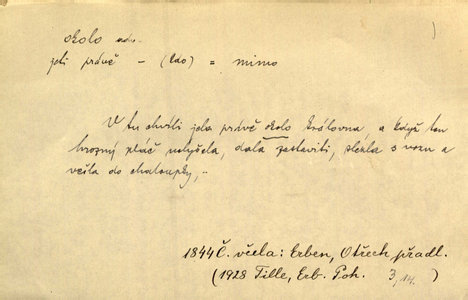 okolo adv.
jeti právě - (kdo) = mimo
V tu chvíli jela právě okolo královna, a když ten
hrozný pláč uslyšela, dala zastaviti, slezla s vozu a
vešla do chaloupky,..
1844 Č. včela: Erben, O třech přadl.
(1928 Tille, Erb. Poh. 3, 14.)